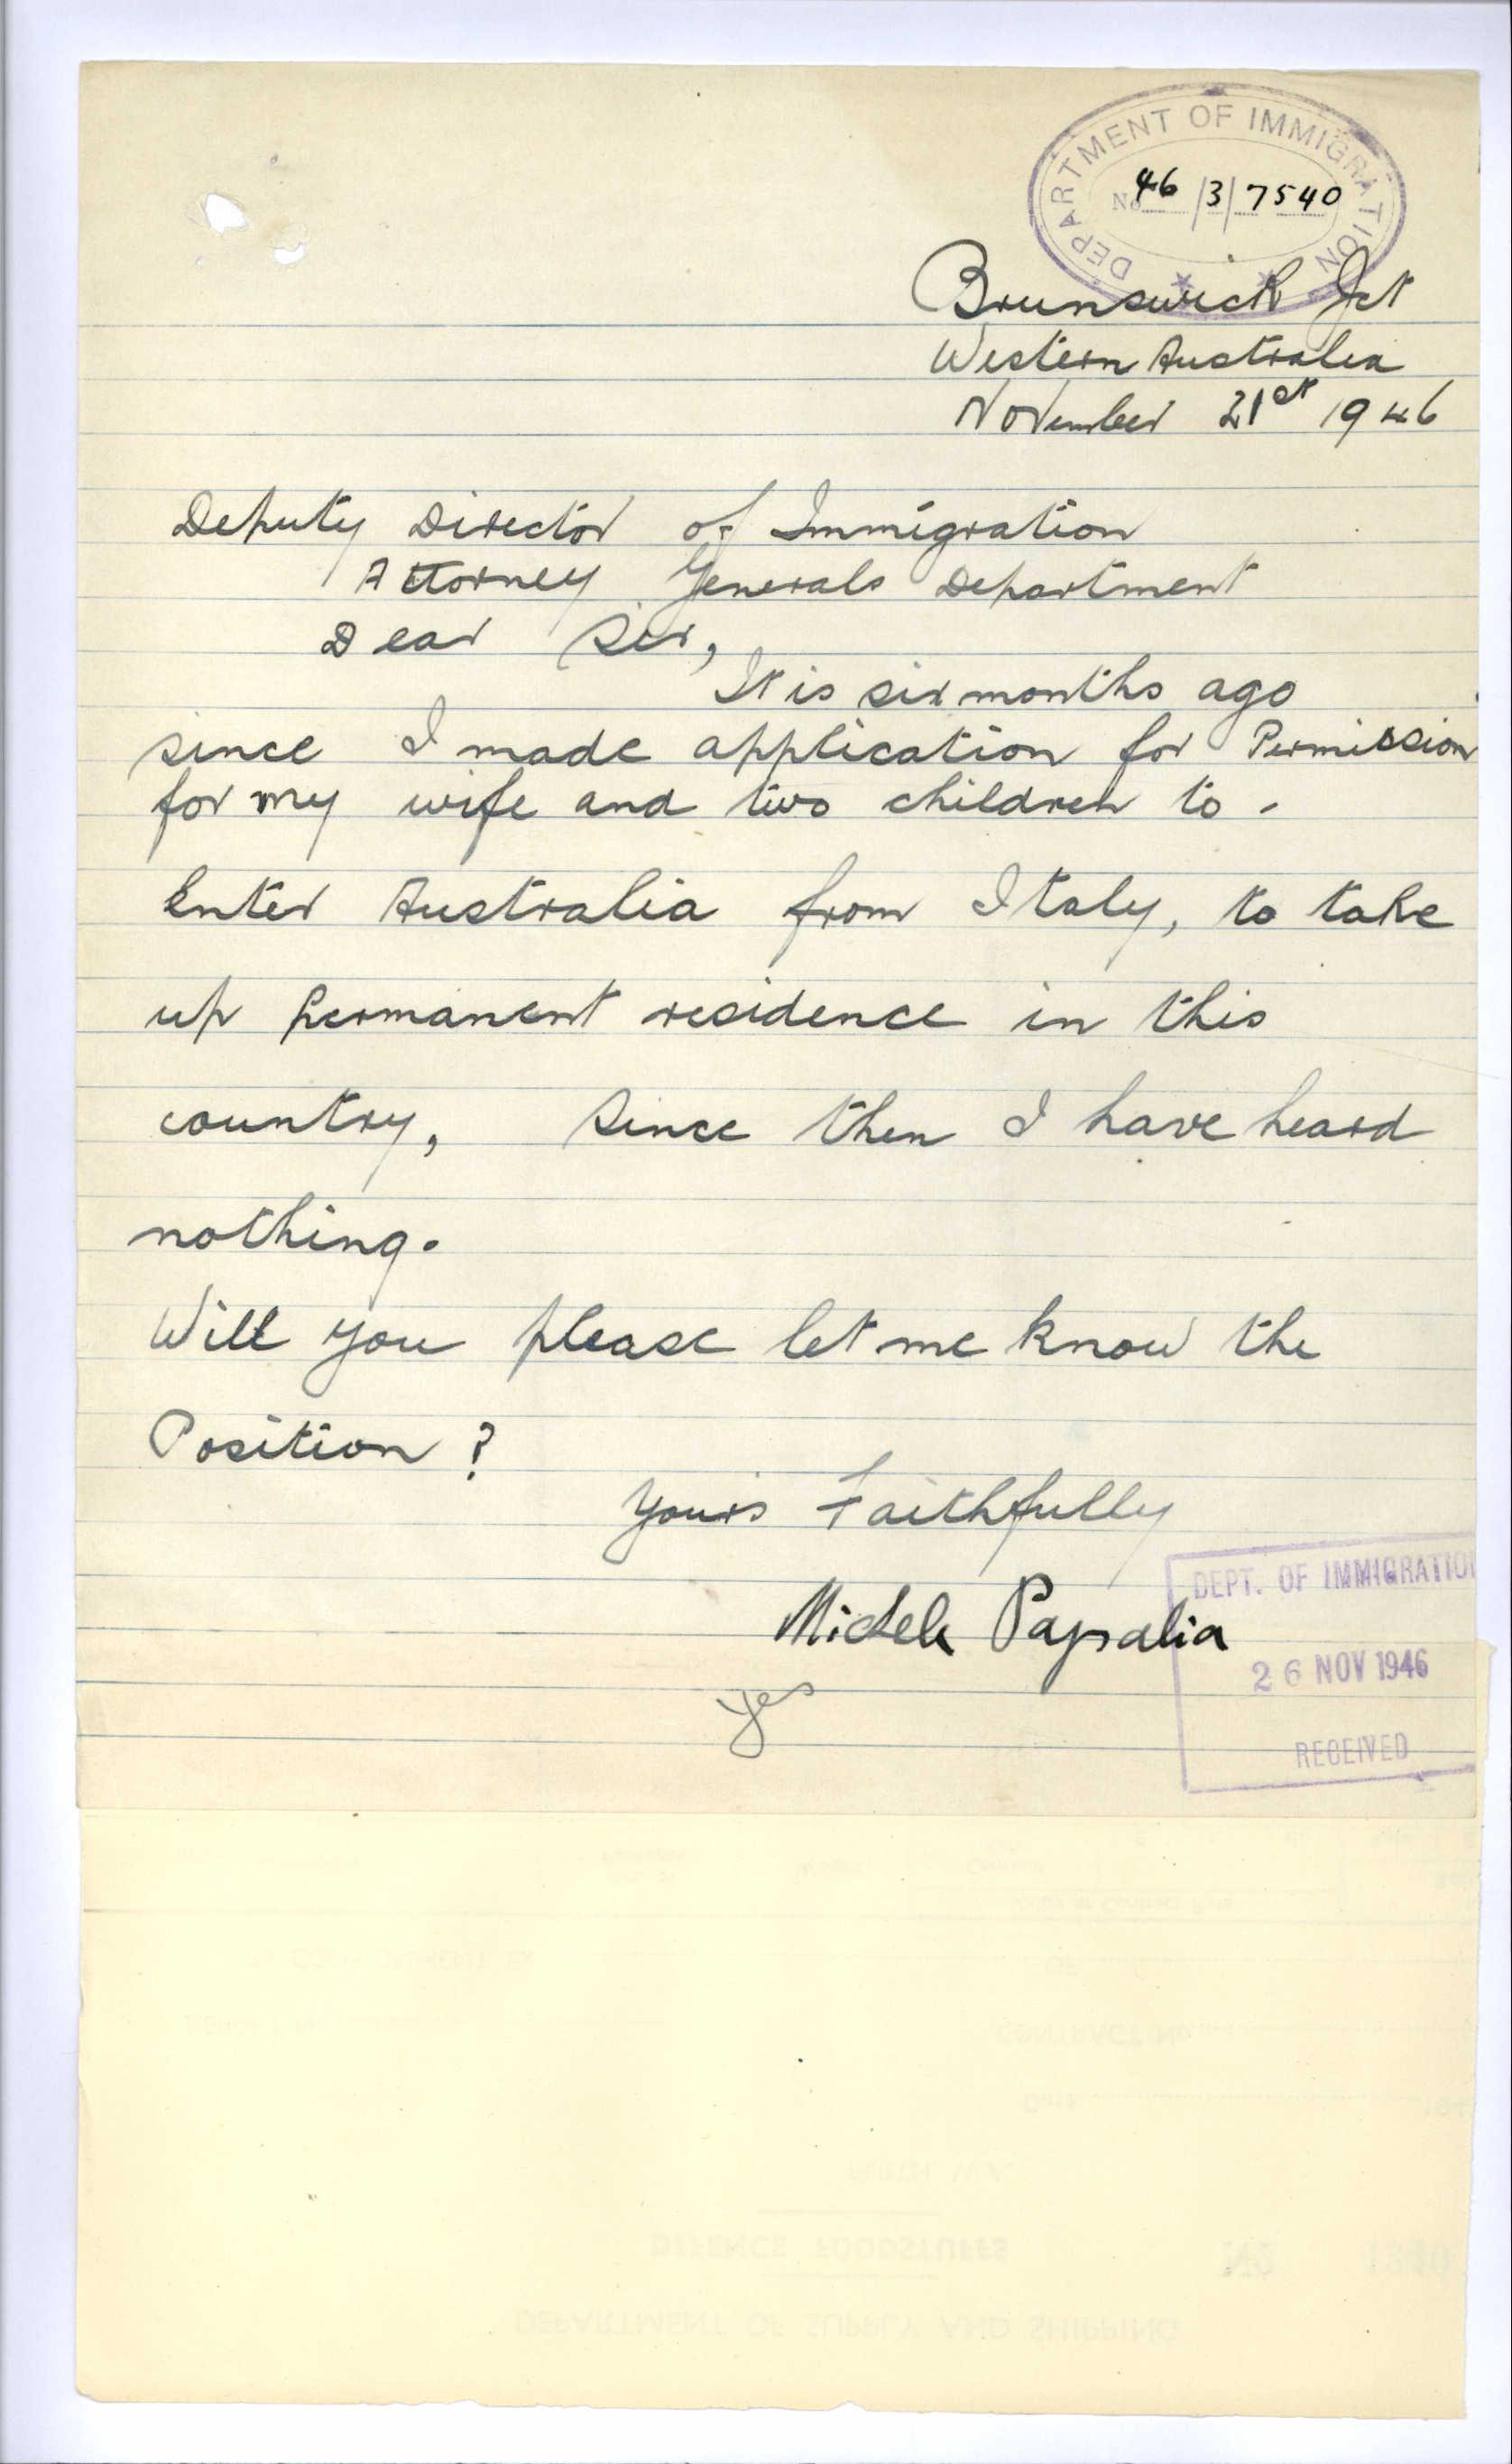 DEPARTMENT OF IMMIGRATION
No 46/3/7540
Brunswick Jct
Western Australia
November 21st 1946
Deputy Director of Immigration
Attorney Generals Department
Dear Sir,
It is six months ago
since I made application for Permission
for my wife and two children to -
Enter Australia from Italy, to take
up permanent residence in this
country, Since then I have heard
nothing.
Will you please let me know the
Position ?
Yours Faithfully
Michele Papalia
DEPT. OF IMMIGRATION
26 NOV 1946
RECEIVED
CONTRACT No
Date
DEFENCE FOODSTUFFS
DEPARTMENT OF SUPPLY AND SHIPPING